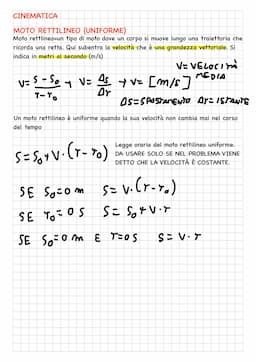 CINEMATICA
MOTO RETTILINEO (UNIFORME)
Moto rettilineo=un tipo di moto dove un corpo si muove lungo una traiettoria che
ricorda una retta. Qui subentra la velocità che è una grandezza vettoriale. Si
indica in metri al secondo (m/s)
V=VELOCITÀ MEDIA
V= S-S₀/T-T₀ → V= ΔS/ΔT → V= [m/S]
ΔS=SPOSTAMENTO ΔT=ISTANTE
Un moto rettilineo è uniforme quando la sua velocità non cambia mai nel corso
del tempo
Legge oraria del moto rettilineo uniforme.
DA USARE SOLO SE NEL PROBLEMA VIENE
DETTO CHE LA VELOCITÀ È COSTANTE.
S=S₀+V·(T-T₀)
SE S₀=0 m S= V·(T-T₀)
SE T₀=0 S S= S₀+V·T
SE S₀=0 m E T=0S S= V·T